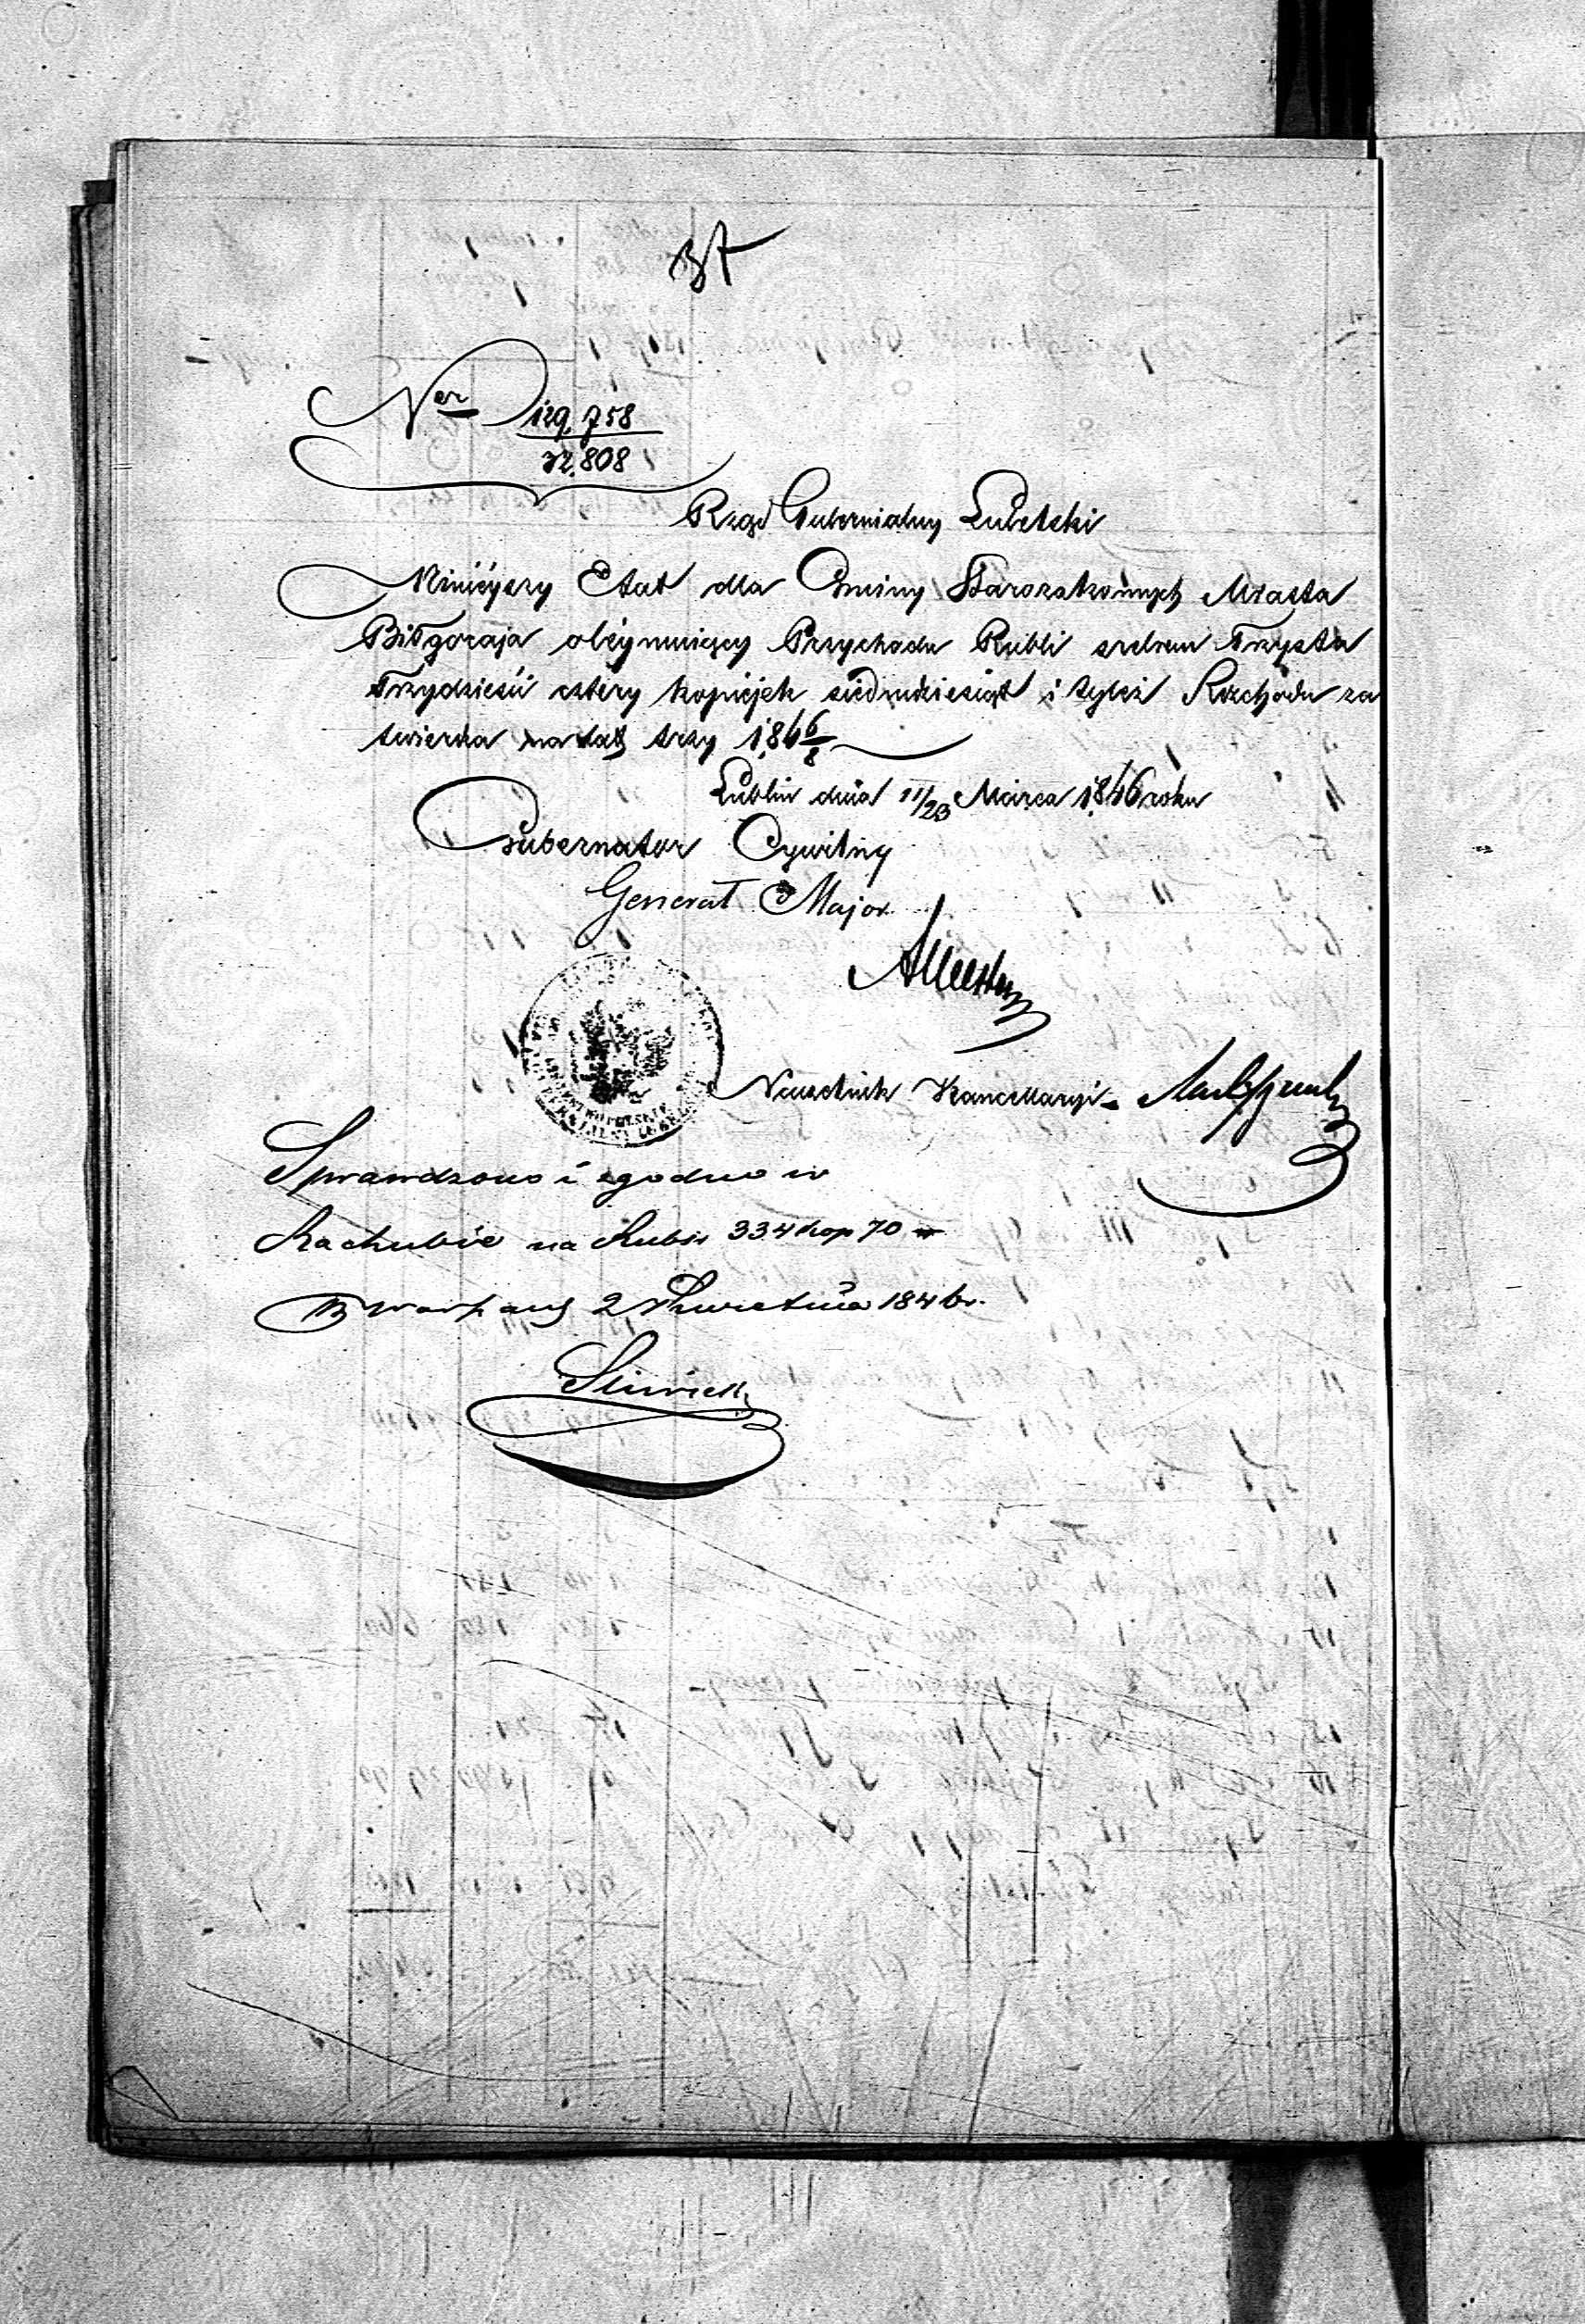 Ner 129,758
32,808
Rząd Gubernialny Lubelski
Niniejszy Etat dla Gminy Starozakonnych Miasta
Biłgoraja obejmujący Przychodu Rubli srebrem Trzysta
Trzydzieści cztery kopiejek siedmdziesiąt i tyleż Rozchodu za
twierdza na lat trzy 1846/8
Lublin dnia 11/23 Marca 1846 roku
Gubernator Cywilny
Generał Major
Naczelnik Kancellaryi
Sprawdzono i zgodno w
Rachubie na Rubsr 334 kop 70
2 Kwietnia 1846 r.